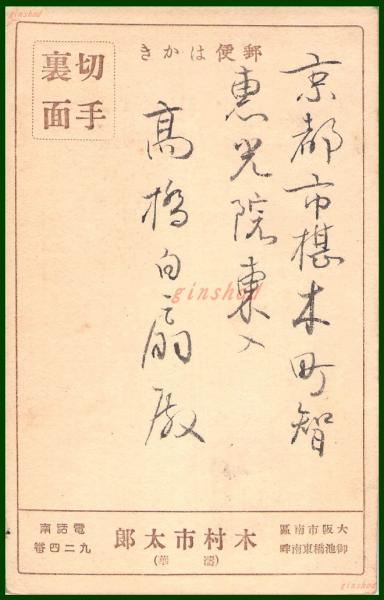 郵便はかき
切手
裏面
京都市椹木町智
恵光院東入
高橋白扇殿
大阪市南區
御池橋東南畔
木村市太郎
(濤華)
電話南
九二四番
ginshod
ginshod
ginshod